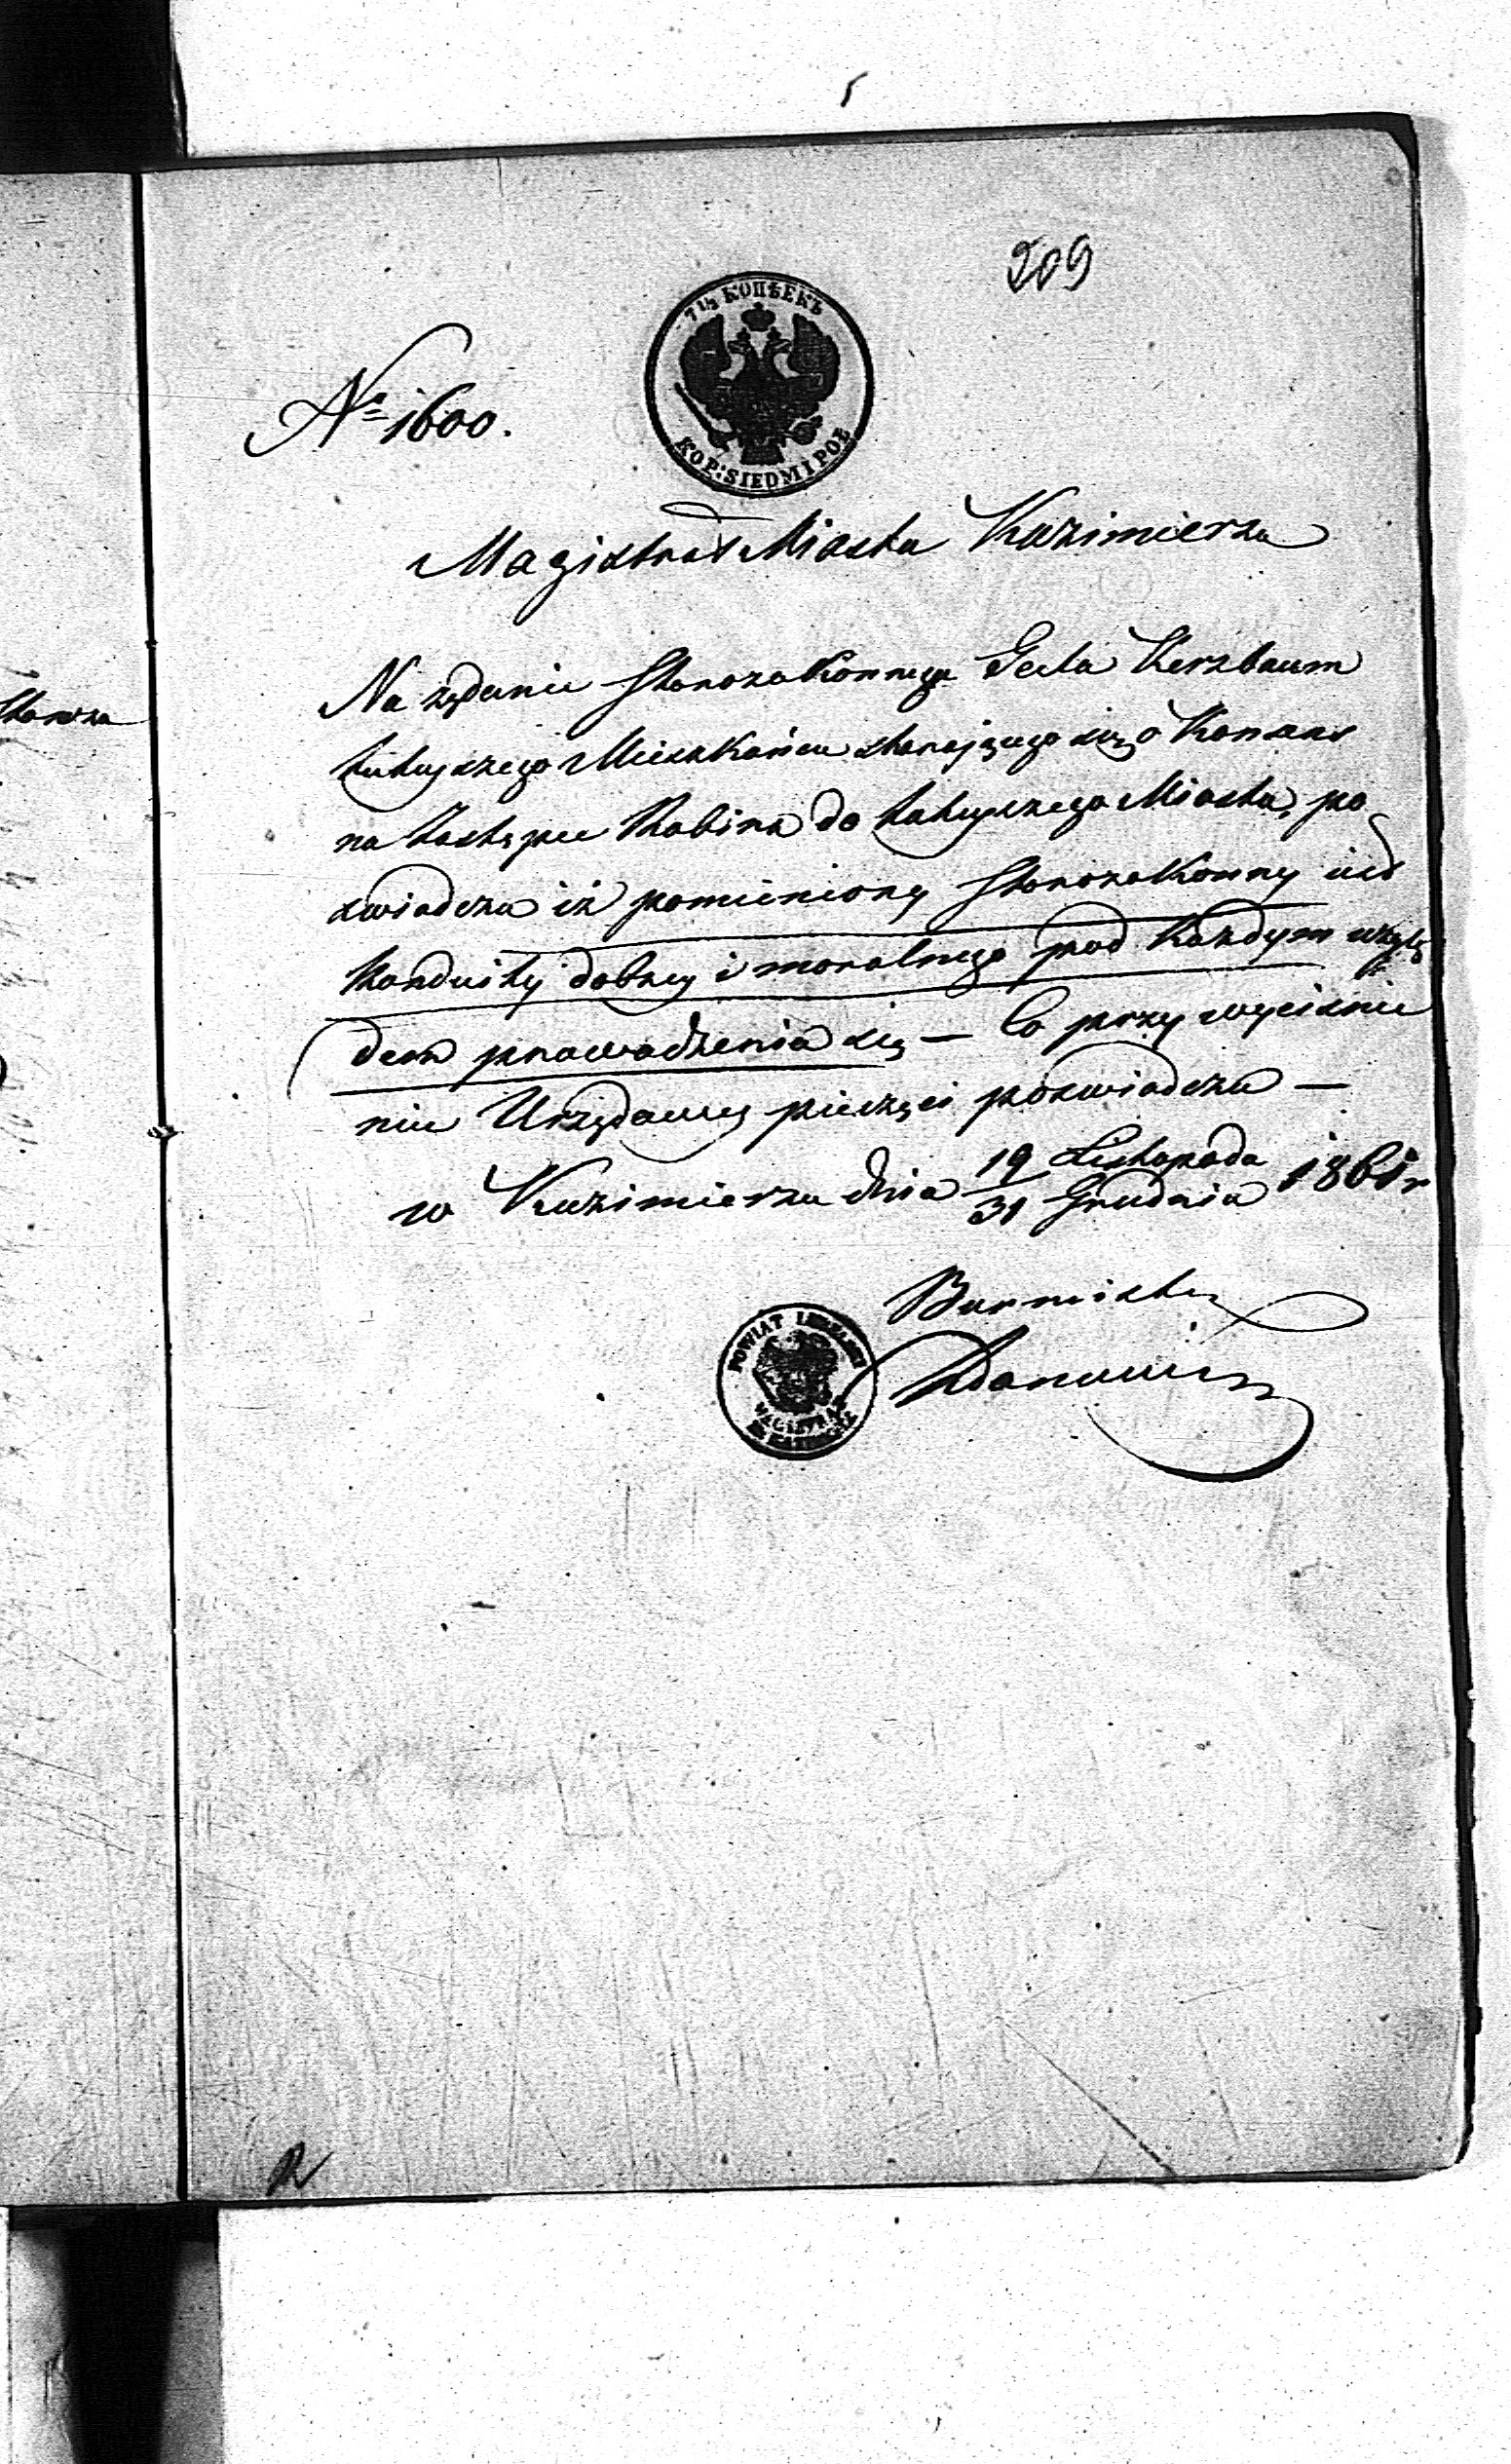 209
7½ КОПѢЕКЪ
KOP: SIEDMIPOŁ
№ 1600.
Magistrat Miasta Kazimierza
Na żądanie Starozakonnego Kerzbaum
tutejszego Mieszkańca starającego się o Konsens
na Zastępcę Rabina do tutejszego Miasta, po
świadcza iż pomieniony Starozakonny jest
Konduity dobrey i moralnego pod każdym wzglę
dem prowadzenia się — Co przy wyciśnie
niu Urzędowey pieczęci poświadcza —
w Kazimierzu dnia 19 Listopada / 31 Grudnia 1861 r
Burmistrz
POWIAT
MAGISTRAT
Staroza